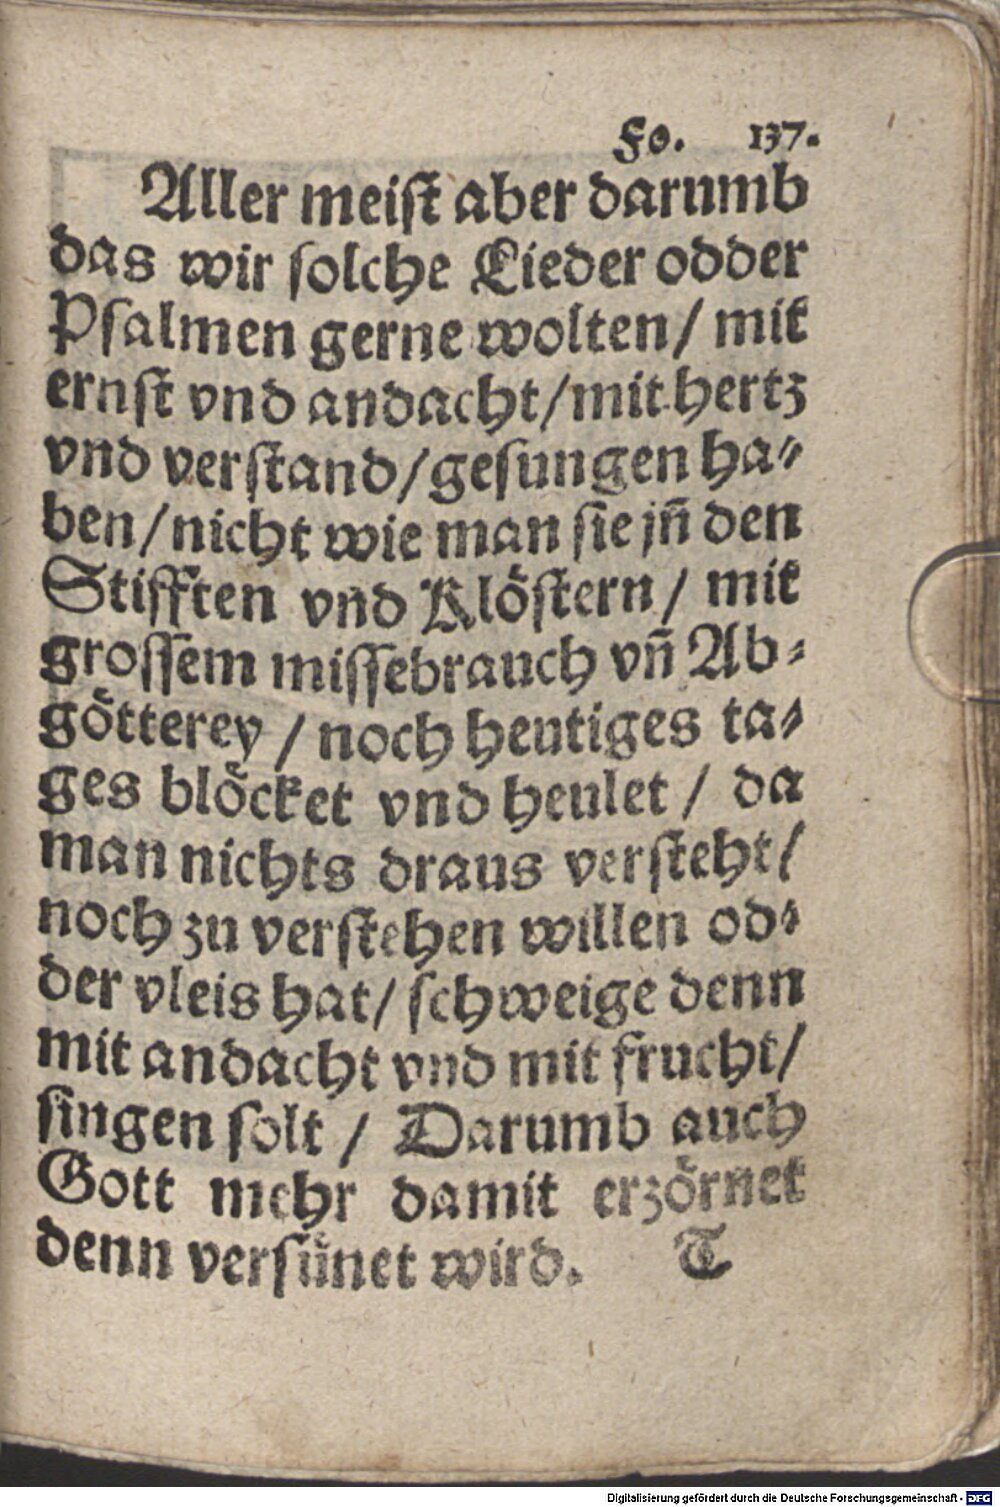 Fo. 137.
Aller meiſt aber darumb
das wir ſolche Lieder odder
Pſalmen gerne wolten / mit
ernſt vnd andacht / mit hertz
vnd verſtand / geſungen ha⸗
ben / nicht wie man ſie jn̄ den
Stifften vnd Klöſtern / mit
groſſem miſſebrauch vn̄ Ab⸗
götterey / noch heutiges ta⸗
ges blöcket vnd heulet / da
man nichts draus verſteht /
noch zu verſtehen willen od⸗
der vleis hat / ſchweige denn
mit andacht vnd mit frucht /
ſingen ſolt / Darumb auch
Gott mehr damit erzörnet
denn verſünet wird. T
Digitalisierung gefördert durch die Deutsche Forschungsgemeinschaft - DFG